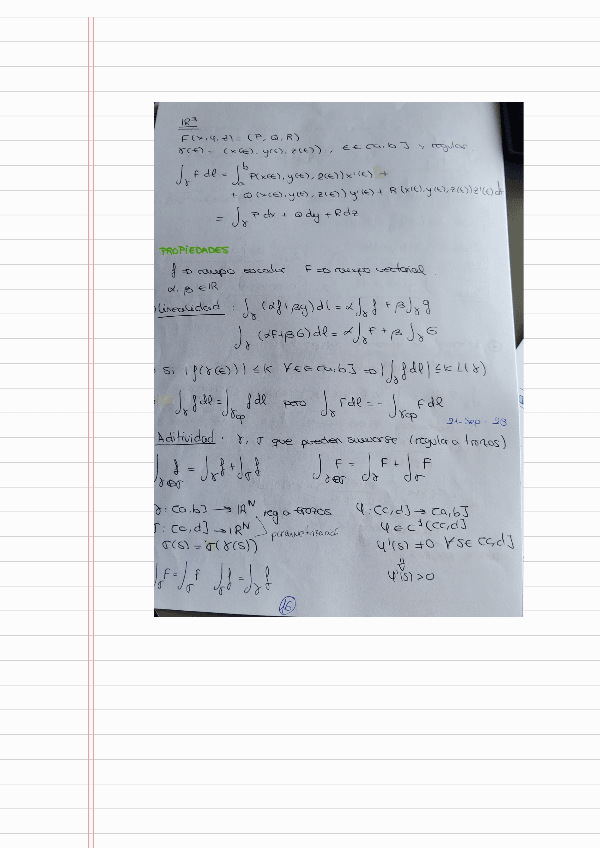 IR³
F(x,y,z) = (P, Q, R)
γ(t) = (x(t), y(t), z(t)), t ∈ [a,b] y regular.
∫_γ F dl = ∫_a^b P(x(t), y(t), z(t)) x'(t) +
+ Q(x(t), y(t), z(t)) y'(t) + R(x(t), y(t), z(t)) z'(t) dt
= ∫_γ P dx + Q dy + R dz
PROPIEDADES
f => campo escalar F => campo vectorial.
α, β ∈ IR
Linealidad : ∫_γ (αf + βg) dl = α∫_γ f + β∫_γ g
∫_γ (αF + βG) dl = α∫_γ F + β∫_γ G
Si |f(γ(t))| ≤ K ∀t ∈ [a,b] => |∫_γ f dl| ≤ K L(γ)
∫_γ f dl = ∫_γop f dl pero ∫_γ F dl = - ∫_γop F dl
21-Sep-23
Aditividad : γ, σ que pueden sumarse (regular a trozos)
∫_γ⊕σ f = ∫_γ f + ∫_σ f ∫_γ⊕σ F = ∫_γ F + ∫_σ F
γ: [a,b] → IR^N reg a trozos φ: [c,d] → [a,b]
σ: [c,d] → IR^N parametrización φ ∈ C¹([c,d])
σ(s) = γ(φ(s)) φ'(s) ≠ 0 ∀ s ∈ [c,d]
∫_γ F = ∫_σ F ∫_σ f = ∫_γ f φ'(s) > 0
16